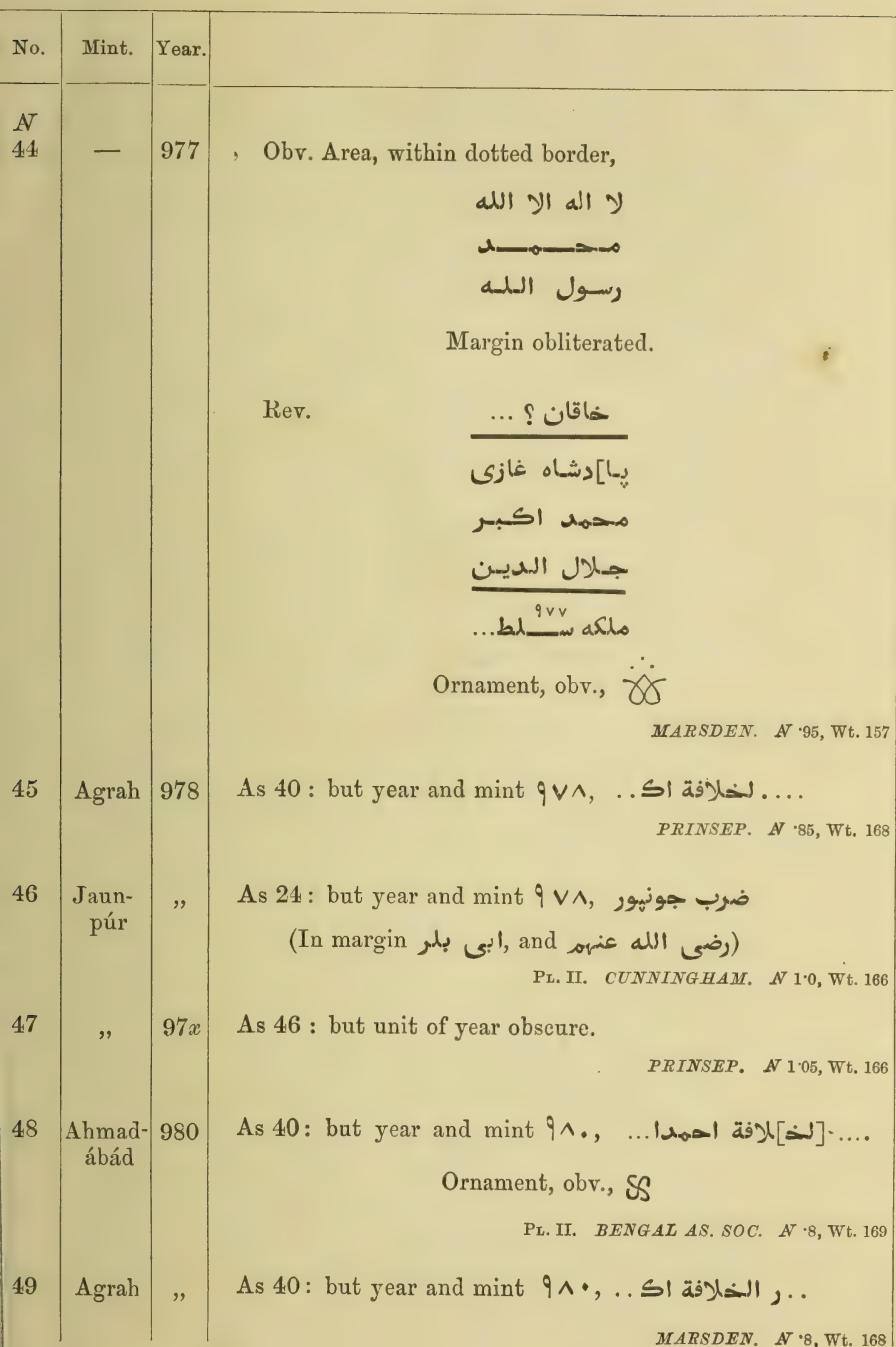 No. Mint. Year.
N
44 — 977 Obv. Area, within dotted border,
لا اله الا الله
محمد
رسول الله
Margin obliterated.
Rev. خاقان ؟ ...
پا]دشاه غازى
محمد اكبر
جلال الدين
٩٧٧
ملكه سلط...
Ornament, obv.,
MARSDEN. N ·95, Wt. 157
45 Agrah 978 As 40 : but year and mint ٩٧٨, .... لخلافة اك ..
PRINSEP. N ·85, Wt. 168
46 Jaun- púr ,, As 24 : but year and mint ٩٧٨, ضرب جونپور
(In margin ابى بلر, and رضى الله عنهم)
PL. II. CUNNINGHAM. N 1·0, Wt. 166
47 ,, 97x As 46 : but unit of year obscure.
PRINSEP. N 1·05, Wt. 166
48 Ahmad- ábád 980 As 40 : but year and mint ٩٨٠, ....[لخ]لافة احمدا...
Ornament, obv.,
PL. II. BENGAL AS. SOC. N ·8, Wt. 169
49 Agrah ,, As 40 : but year and mint ٩٨٠, ..ر الخلافة اك ..
MARSDEN. N ·8, Wt. 168